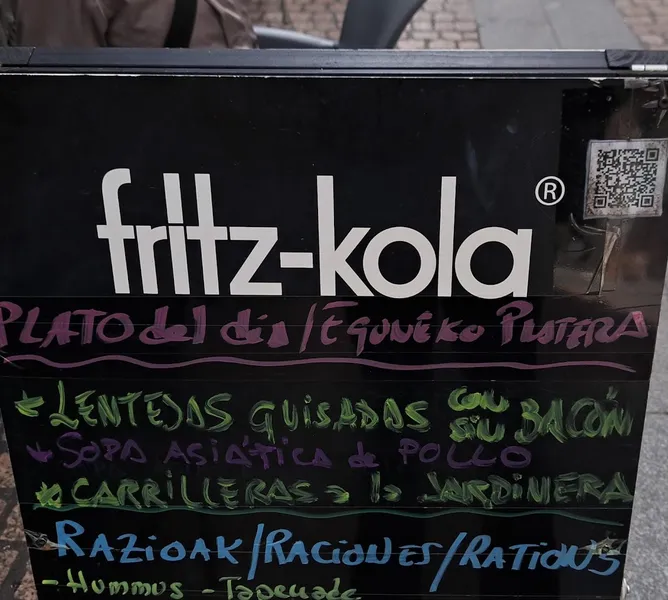 fritz-kola ®
PLATO del día / EGUNEKO PLATERA
* LENTEJAS GUISADAS con BACÓN
sin
* SOPA ASIÁTICA de POLLO
* CARRILLERAS a la JARDINERA
RAZIOAK/RACIONES/RATIONS
- Hummus - Tapenade